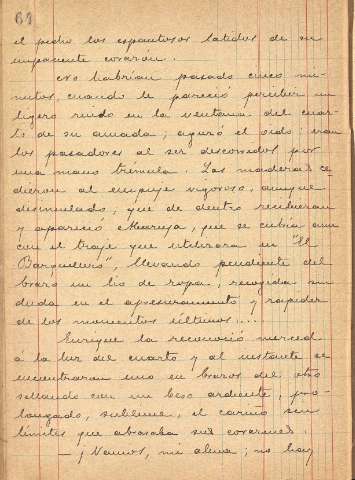 61
el pecho los espantosos latidos de su
impaciente corazón.
No habrían pasado cinco mi-
nutos, cuando le pareció percibir un
ligero ruido en la ventana del cuar-
to de su amada; aguzó el oído: eran
los pasadores al ser descorridos por
una mano trémula. Las maderas ce-
dieron al empuje vigoroso, aunque
disimulado, que de dentro recibieran
y apareció Maruja, que se cubría aun
con el traje que utilizara en "El
Barquillero", llevando pendiente del
brazo un lío de ropa, recogida sin
duda en el apresuramiento y rapidez
de los momentos últimos....
Enrique la reconoció merced
a la luz del cuarto y al instante se
encontraron uno en brazos del otro
sellando con un beso ardiente, pro-
longado, sublime, el cariño sin
límites que abrasaba sus corazones.
— ¡Vamos, mi alma; no hay